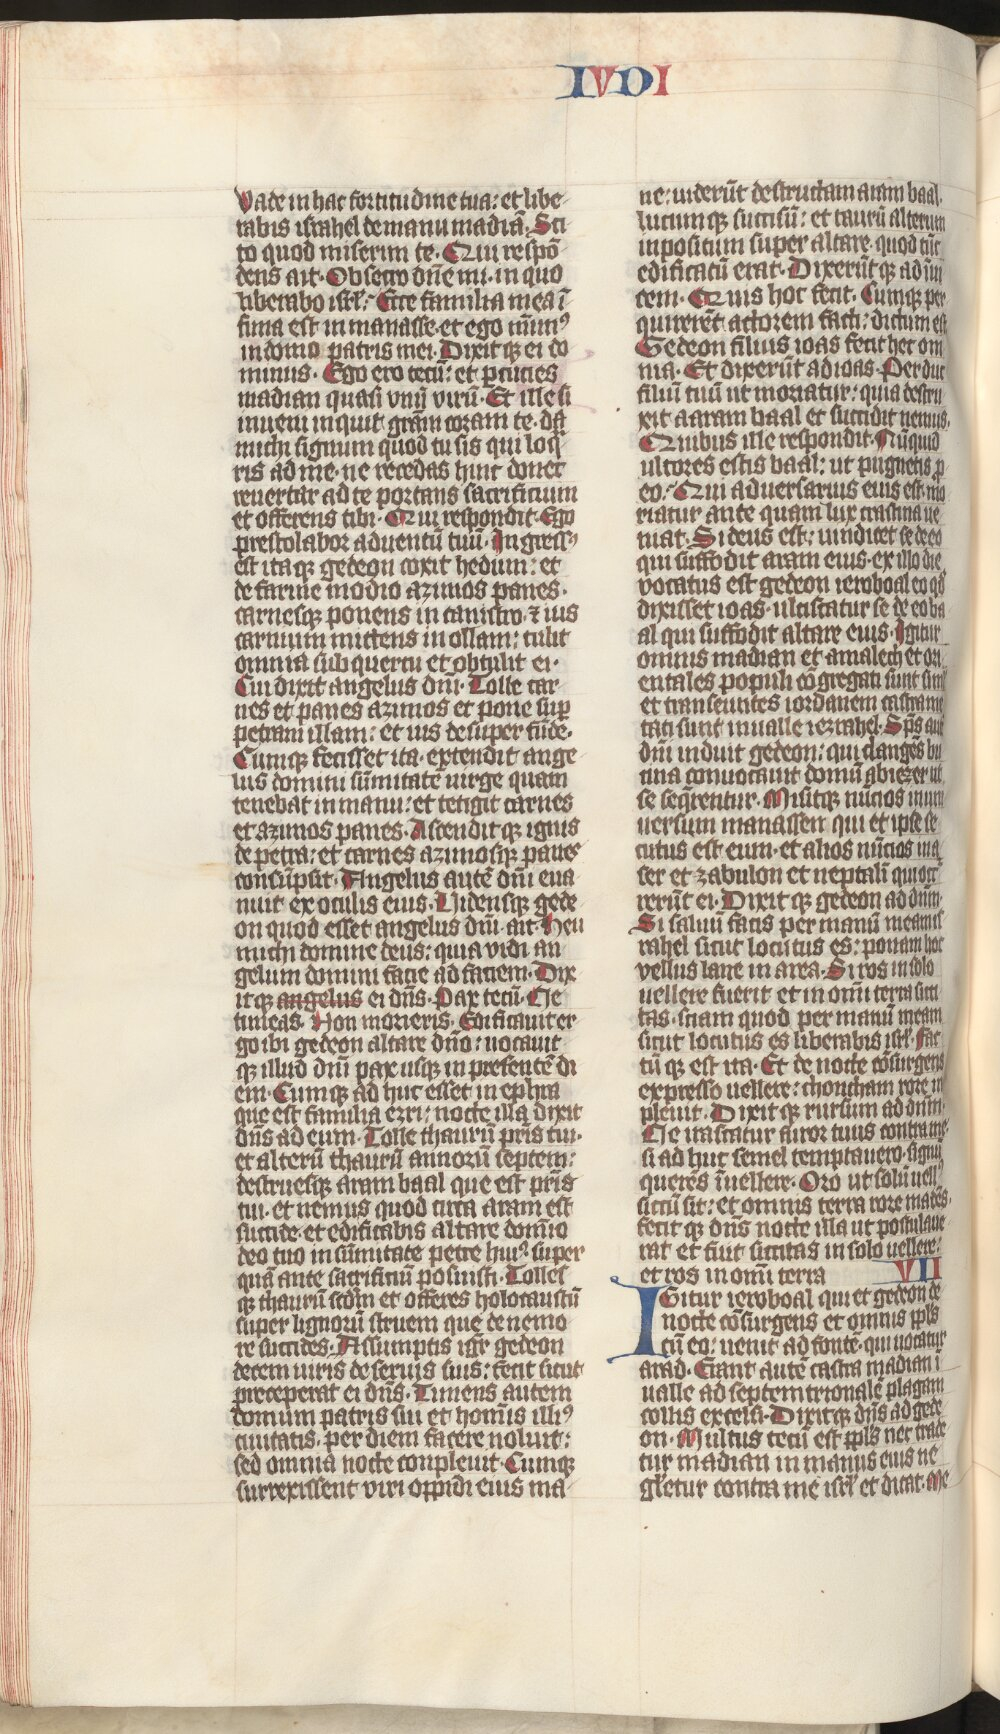 IVDI
Vade in hac fortitudine tua: et libe
rabis israhel de manu madiā. Sci
to quod miserim te. Qui respō
dens ait. Obsecro dn̄e mi. in quo
liberabo isrl̄: Ecce familia mea ī
fima est in manasse. et ego minimꝰ
in domo patris mei. Dixitqꝫ ei do
minus. Ego ero tecū: et ꝑcucies
madian quasi vnū virū. Et ille si
inveni inquit grām coram te. da
michi signum quod tu sis qui loq̄
ris ad me. ne recedas hinc donec
revertar ad te portans sacrificium
et offerens tibi. Qui respondit. Ego
prestolabor adventū tuū. Ingressꝰ
est itaqꝫ gedeon coxit hedum: et
de farine modio azimos panes.
carnesqꝫ ponens in canistro. ⁊ ius
carnium mittens in ollam: tulit
omnia sub quercu et obtulit ei.
Cui dixit angelus dn̄i. Tolle car
nes et panes azimos et pone suꝑ
petram illam: et ius desuper fūde.
Cumqꝫ fecisset ita. extendit ange
lus domini sūmitatē virge quam
tenebat in manu: et tetigit carnes
et azimos panes. Ascenditqꝫ ignis
de petra: et carnes azimosqꝫ panes
consūpsit. Angelus autē dn̄i eva
nuit ex oculis eius. Vidensqꝫ gede
on quod esset angelus dn̄i. ait. Heu
michi domine deus: quia vidi an
gelum domini facie ad faciem. Dix
itqꝫ angelus ei dn̄s. Pax tecū. Ne
timeas. Non morieris. Edificavit er
go ibi gedeon altare dn̄o: vocavit
qꝫ illud dn̄i pax usqꝫ in presentē di
em. Cumqꝫ ad huc esset in ephra
que est familia ezri: nocte illa dixit
dn̄s ad eum. Tolle thaurū pr̄is tui.
et alterū thaurū annorū septem:
destruesqꝫ aram baal que est pr̄is
tui. et nemus quod circa aram est
succide. et edificabis altare domīo
deo tuo in sūmitate petre huiꝰ super
quā ante sacrificiū posuisti. Tolles
qꝫ thaurū scd̄m et offeres holocaustū
super lignorū struem que de nemo
re succides. Assumptis igr̄ gedeon
decem viris de servis suis: fecit sicut
preceperat ei dn̄s. Timens autem
domum patris sui et homīs illiꝰ
civitatis. per diem facere noluit:
sed omnia nocte conplevit. Cumqꝫ
surrexissent viri oppidi eius ma-
ne: viderūt destructam aram baal.
lucumqꝫ succisū: et taurū alterum
inpositum super altare. quod tūc
edificatū erat. Dixerūtqꝫ ad īvi
cem. Quis hoc fecit. Cumqꝫ per
quirerēt actorem facti: dictum est
Gedeon filius ioas fecit hec om
nia. Et dixerūt ad ioas. Per duc
filiū tuū ut moriatur: quia destru
xit aaram baal et succidit nemus.
Quibus ille respondit. Nūquid
ultores estis baal: ut pugnetis ꝓ
eo: Qui adversarius eius est. mo
riatur ante quam lux crastina ve
niat. Si deus est: vindicet se de eo
qui suffodit aram eius. ex illo die
vocatus est gedeon ieroboal eo qd̄
dixisset ioas. ulciscatur se de eo ba
al qui suffodit altare eius. Igitur
omnis madian et amalech et ori
entales populi cōgregati sunt siml̄
et transeuntes iordanem castrame
tati sunt in valle iezrahel. Sp̄s aut̄
dn̄i induit gedeon: qui clangēs bu
cina convocavit domū abiezer ut
se seq̄rentur. Misitqꝫ nūcios in uni
versum manassen qui et ipse se
cutus est eum. et alios nūcios in a
ser et zabulon et neptali qui occ
rerūt ei. Dixitqꝫ gedeon ad dn̄m.
Si salvū facis per manū meam is
rahel sicut locutus es: ponam hoc
vellus lane in area. Si ros in solo
vellere fuerit et in omī terra sicci
tas. sciam quod per manū meam
sicut locutus es liberabis isrl̄. Fac
tūqꝫ est ita. Et de nocte cōsurgens
expresso vellere: choncham rore in
plevit. Dixitqꝫ rursum ad dn̄m.
Ne irascatur furor tuus contra me
si ad huc semel temptavero. signū
querēs ī vellere. Oro ut solū vellꝰ
siccū sit: et omnis terra rore madēs.
fecitqꝫ dn̄s nocte illa ut postulave
rat et fuit siccitas in solo vellere:
et ros in omī terra VII
Igitur ieroboal qui et gedeon de
nocte cōsurgens et omnis ppl̄s
cū eo: venit ad fontē. qui vocatur
arad. Erant autē castra madian ī
valle ad septemtrionalē plagam
collis excelsi. Dixitqꝫ dn̄s ad gede
on. Multus tecū est ppl̄s nec trade
tur madian in manus eius ne
gl̄etur contra me isrl̄ et dicat. Me